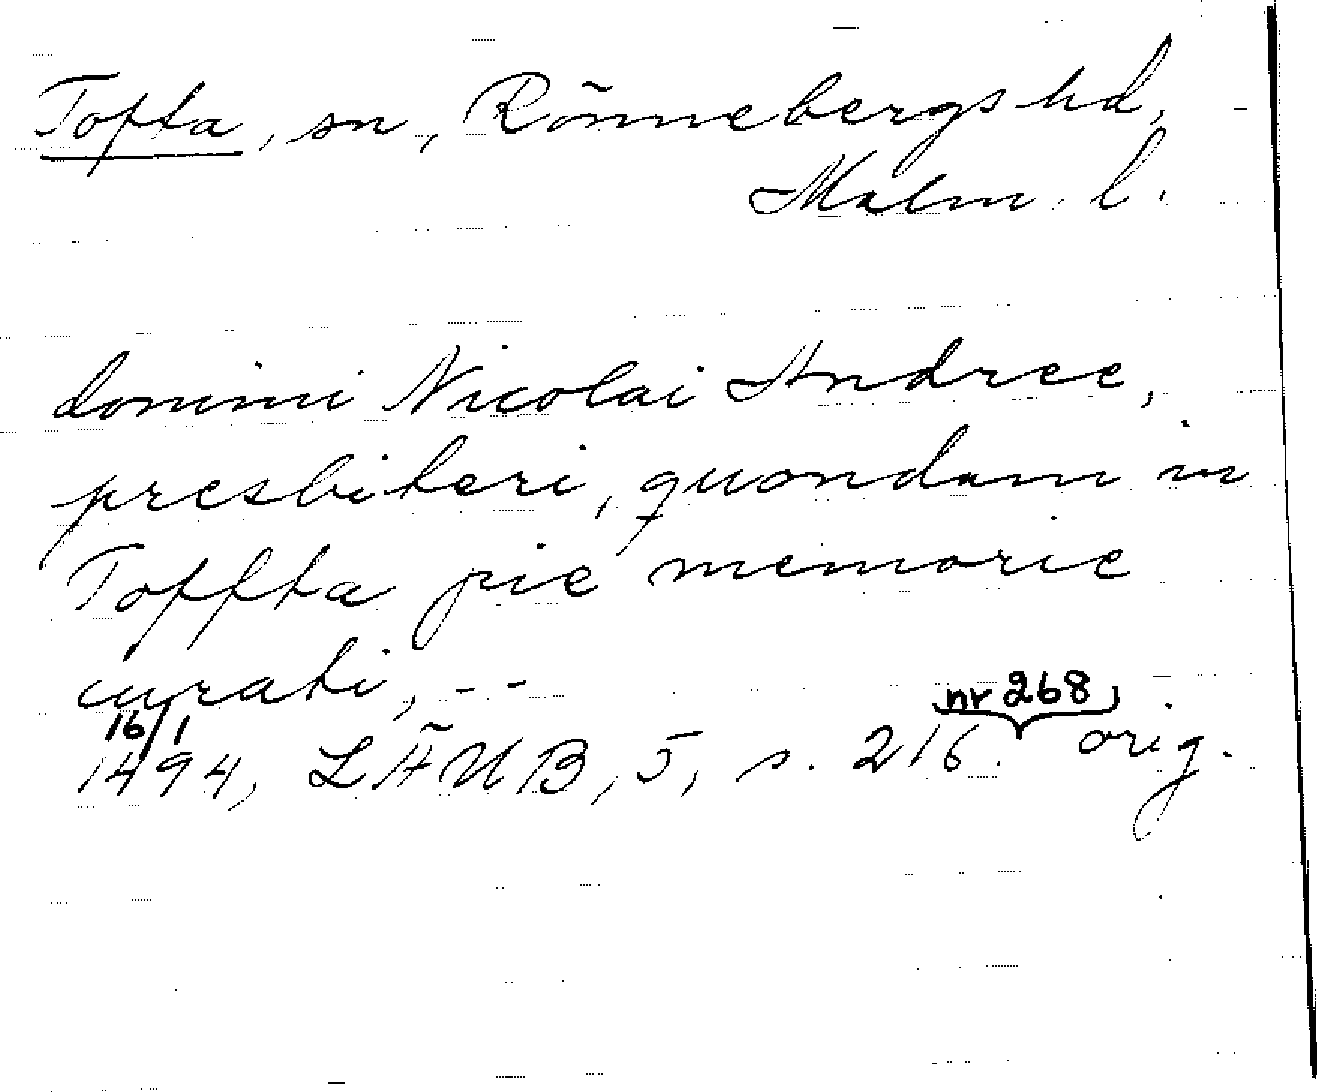 Tofta, sn, Rönnebergs hd,
Malm. l.
domini Nicolai Andree,
presbiteri, quondam in
Toffta pie memorie
curati, --
nr 268
16/1
1494, LÄUB, 5, s. 216. orig.